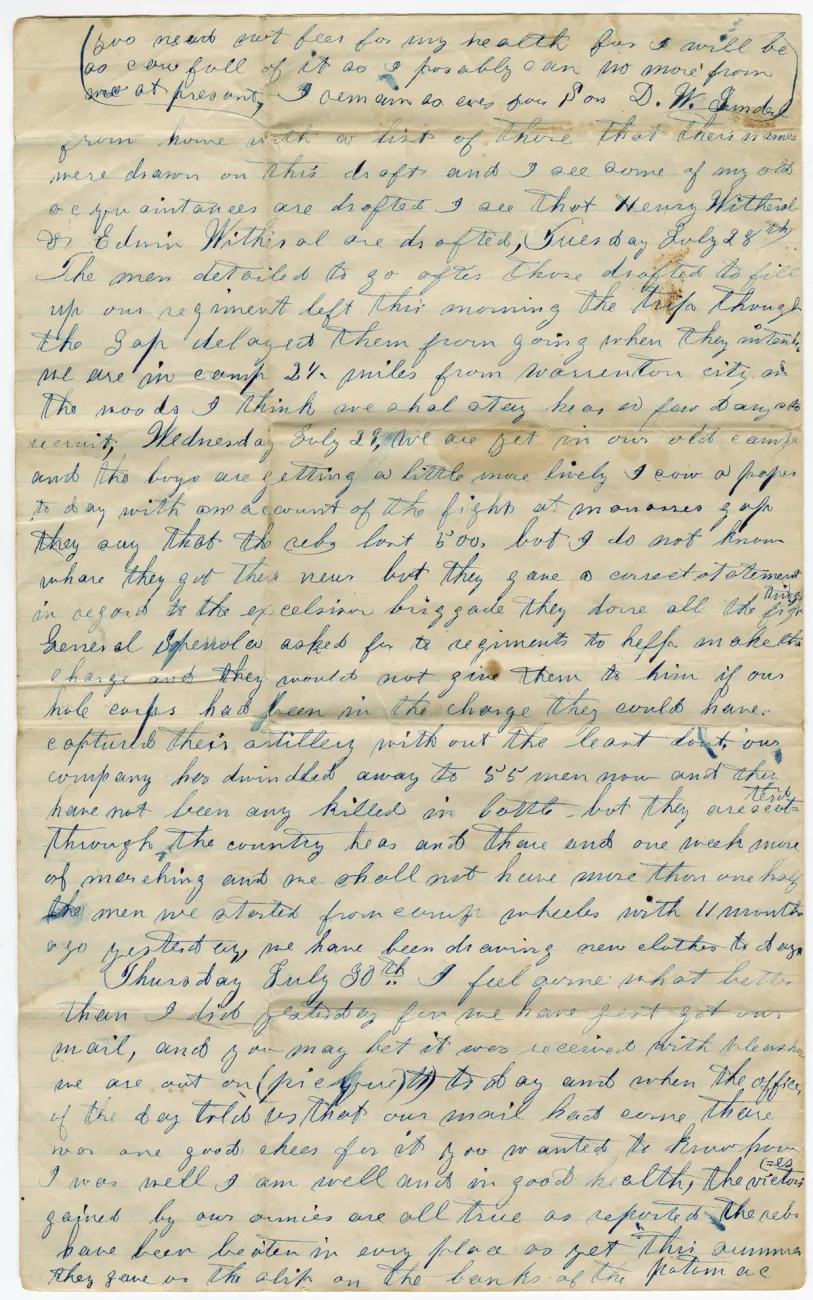 (you need not feer for my health for I will be
as care full of it as I posably can no more from
me at present, I remain as ever your Son D. W.
from home with a list of those that theirs names
were drawn on this draft and I see some of my old
acquaintances are drafted I see that Henry Witheral
& Edwin Witheral are drafted, Tuesday July 28th
The men detailed to go after those drafted to fill
up our regiment left this morning the trip though
the Gap delayed them from going when they intend
we are in camp 2½ miles from warrenton city in
the woods I think we shal stay hear a few Days to
recruit, Wednesday July 29, we are yet in our old camp
and the boys are getting a little more lively I saw a paper
to day with an account of the fight at manasses gap
they say that the rebs lost 500, but I do not know
whare they got there news but they gave a correct statement
in regard to the excelsior briggade they done all the fighting
General Spenola asked for to regiments to help make the
charge and they would not give them to him if our
hole corps had been in the charge they could have
captured their artillery with out the least dout, our
company has dwindled away to 55 men now and they
have not been any killed in battle but they are scatterd
through the country hear and thare and one week more
of marching and we shall not have more than one half
the men we started from camp wheeler with 11 months
ago yesterday, we have been drawing new clothes to day
Thursday July 30th I feel some what better
than I did yesterday for we have jest got our
mail, and you may bet it was received with pleasure
we are out on (picquet) to day and when the officer
of the day told us that our mail had come thare
was one good cheer for it you wanted to know how
I was well I am well and in good health, the victories
gained by our armies are all true as reported the rebs
have been beaten in evry place as yet this summer
they gave us the slip on the banks of the Potomac